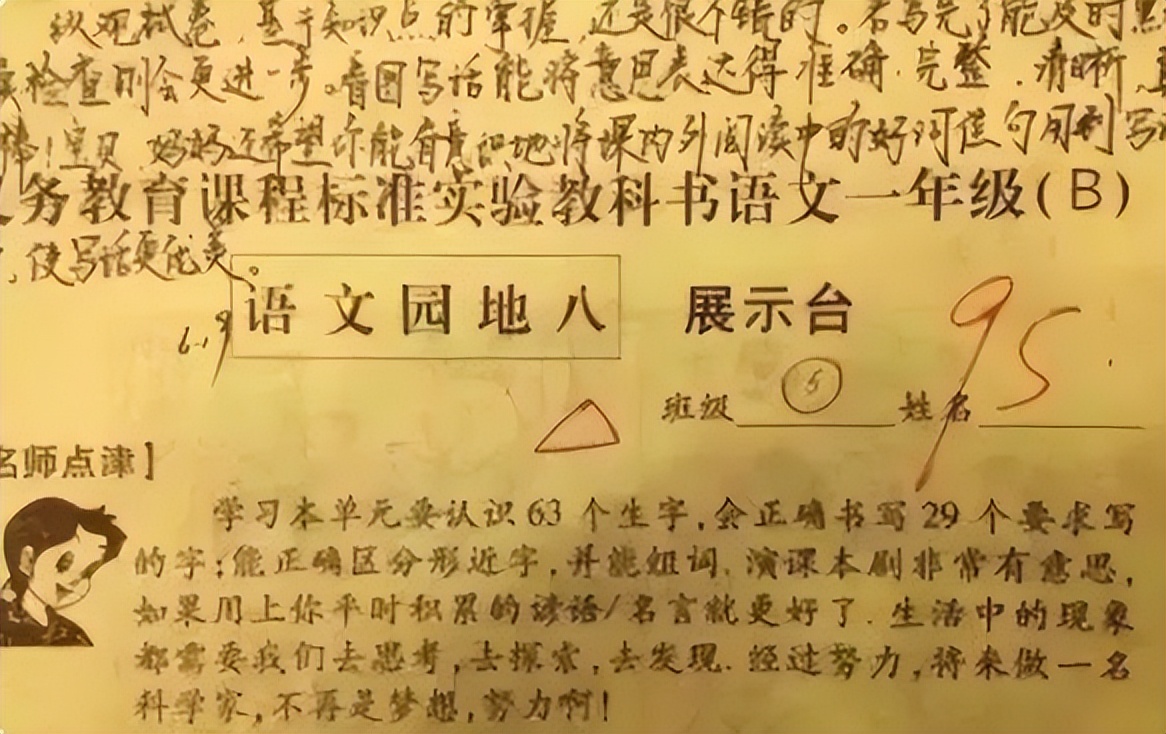 纵观试卷,基本知识点的掌握还是很不错的。若写完了能及时
检查则会更进一步。看图写话能将意思表达得准确、完整、清晰,
棒!宝贝 妈妈还希望你能有意识地将课内外阅读中的好词佳句用到写
务教育课程标准实验教科书语文一年级(B)
,使写话更优美。
语文园地八 展示台
6.19
95
班级 5 姓名
名师点津]
学习本单元要认识63个生字,会正确书写29个要求写
的字;能正确区分形近字,并能组词.演课本剧非常有意思,
如果用上你平时积累的谚语/名言就更好了.生活中的现象
都需要我们去思考,去探索,去发现.经过努力,将来做一名
科学家,不再是梦想,努力啊!